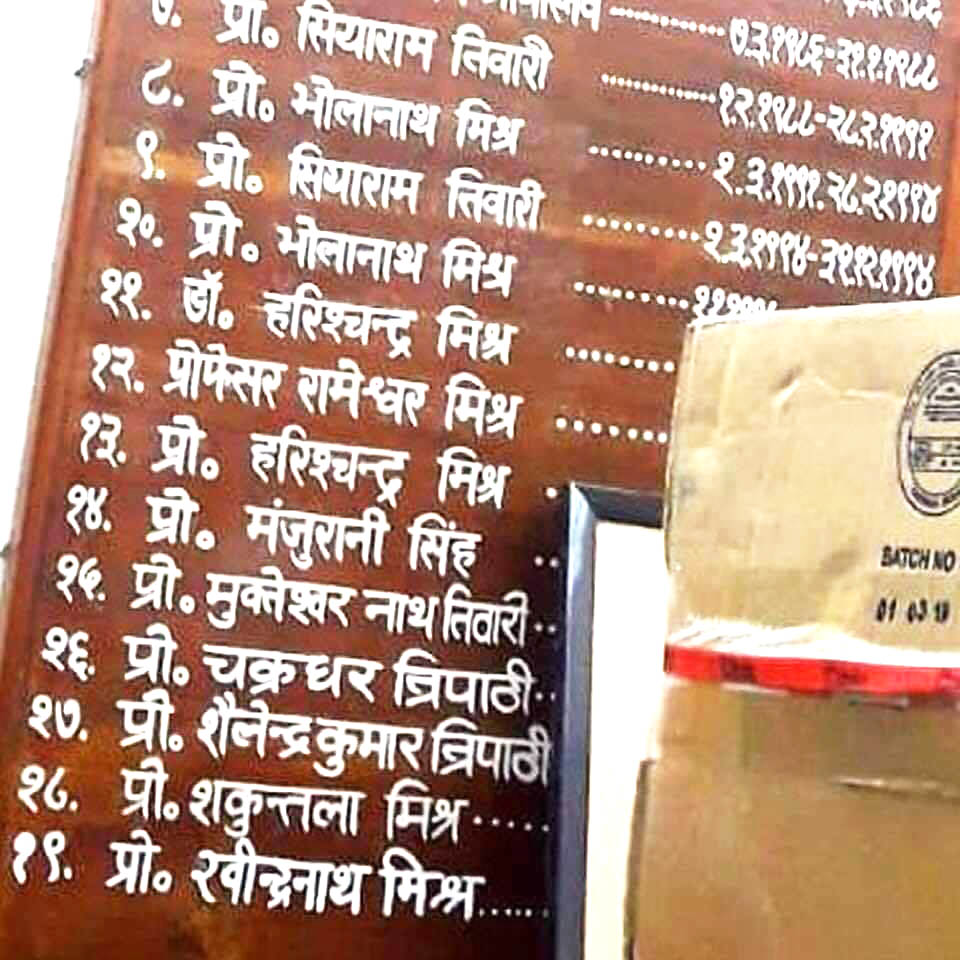 ७. प्रो. सियाराम तिवारी ............ ७.३.१९८६-३१.१.१९८८
८. प्रो. भोलानाथ मिश्र ............ १.२.१९८८-२८.२.१९९१
९. प्रो. सियाराम तिवारी ............ १.३.१९९१.२८.२.१९९४
१०. प्रो. भोलानाथ मिश्र ............ १.३.१९९४-३१.१२.१९९४
११. डॉ. हरिश्चन्द्र मिश्र ............
१२. प्रोफेसर रामेश्वर मिश्र ............
१३. प्रो. हरिश्चन्द्र मिश्र .
१४. प्रो. मंजुरानी सिंह ..
१५. प्रो. मुक्तेश्वर नाथ तिवारी ..
१६. प्रो. चक्रधर त्रिपाठी ..
१७. प्रो. शैलेन्द्र कुमार त्रिपाठी
१८. प्रो. शकुन्तला मिश्र .....
१९. प्रो. रवीन्द्रनाथ मिश्र ......
BATCH NO
01 03 19